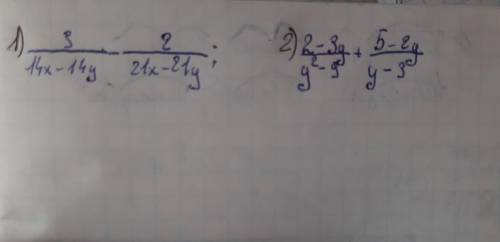 1) 3/(14x-14y) - 2/(21x-21y); 2) (2-3y)/(y²-9) + (5-2y)/(y-3)